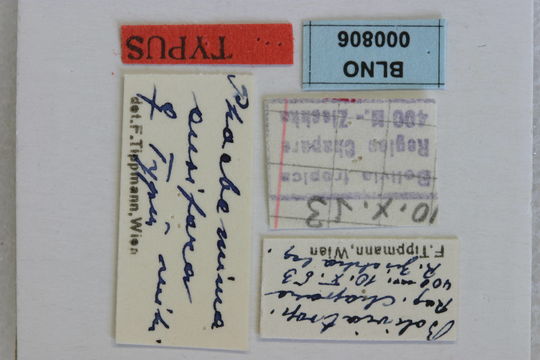 TYPUS
BLNO
000806
Phaebemima
ensifera
♀ Type mihi.
det. F. Tippmann, Wien
Bolivia tropica
Region Chapare
400 M. - Zischka
10.X.53
Bolivia trop.
Reg. Chapare
400 m. 10.X.53
R. Zischka leg.
F. Tippmann, Wien